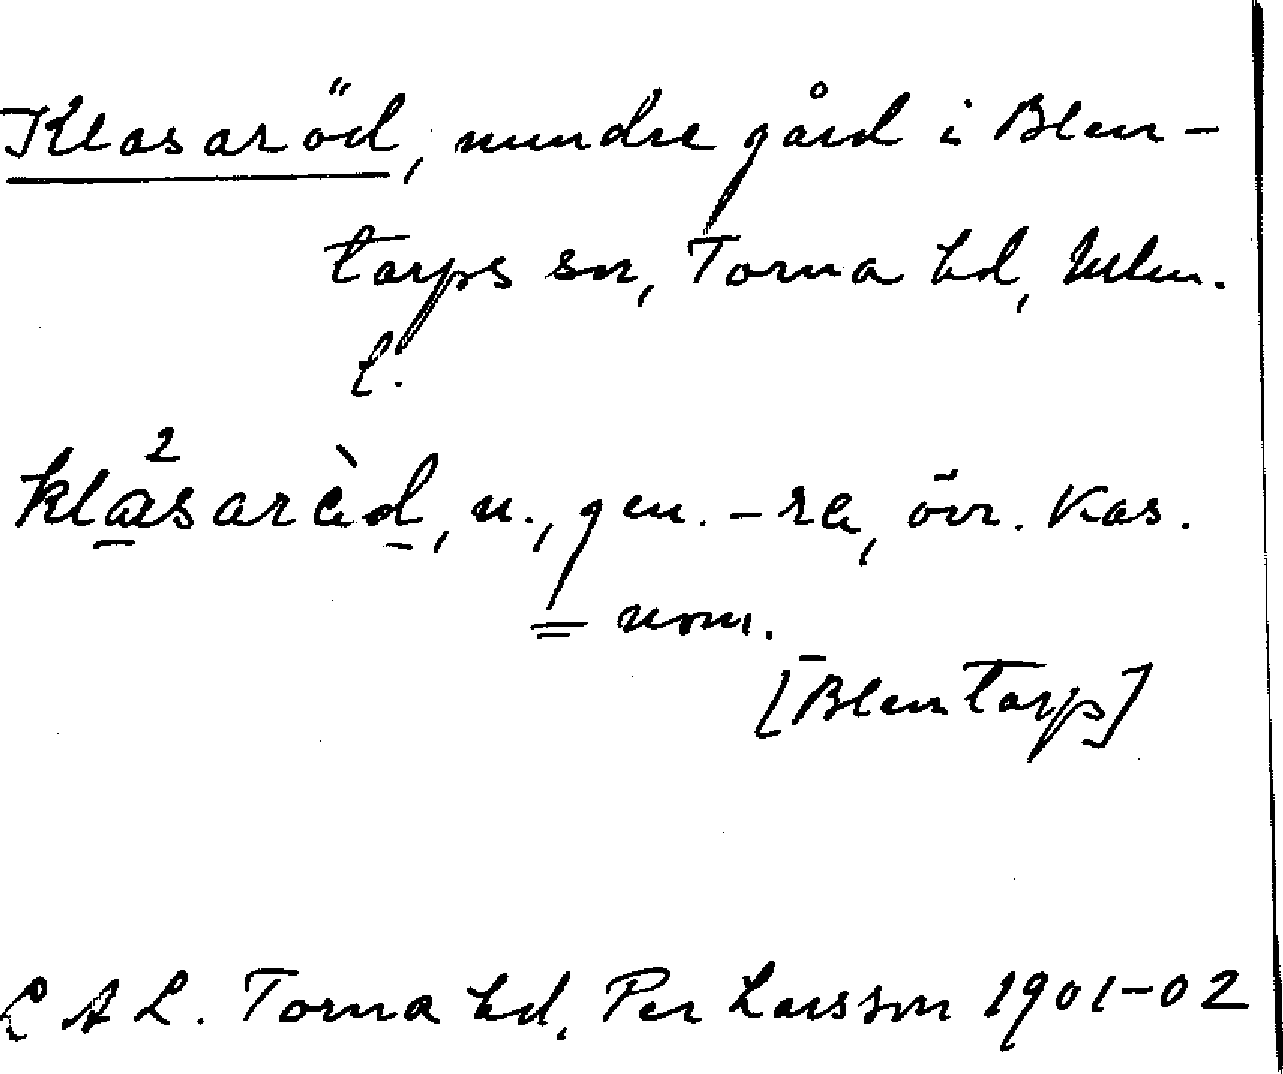 Klasaröd, mindre gård i Blen-
tarps sn, Torna hd, Mlm.
l.
kla²sarèd, n., gen. -sa, övr. kas.
= nom.
[Blentarp]
LAL. Torna hd, Per Larsson 1901-02